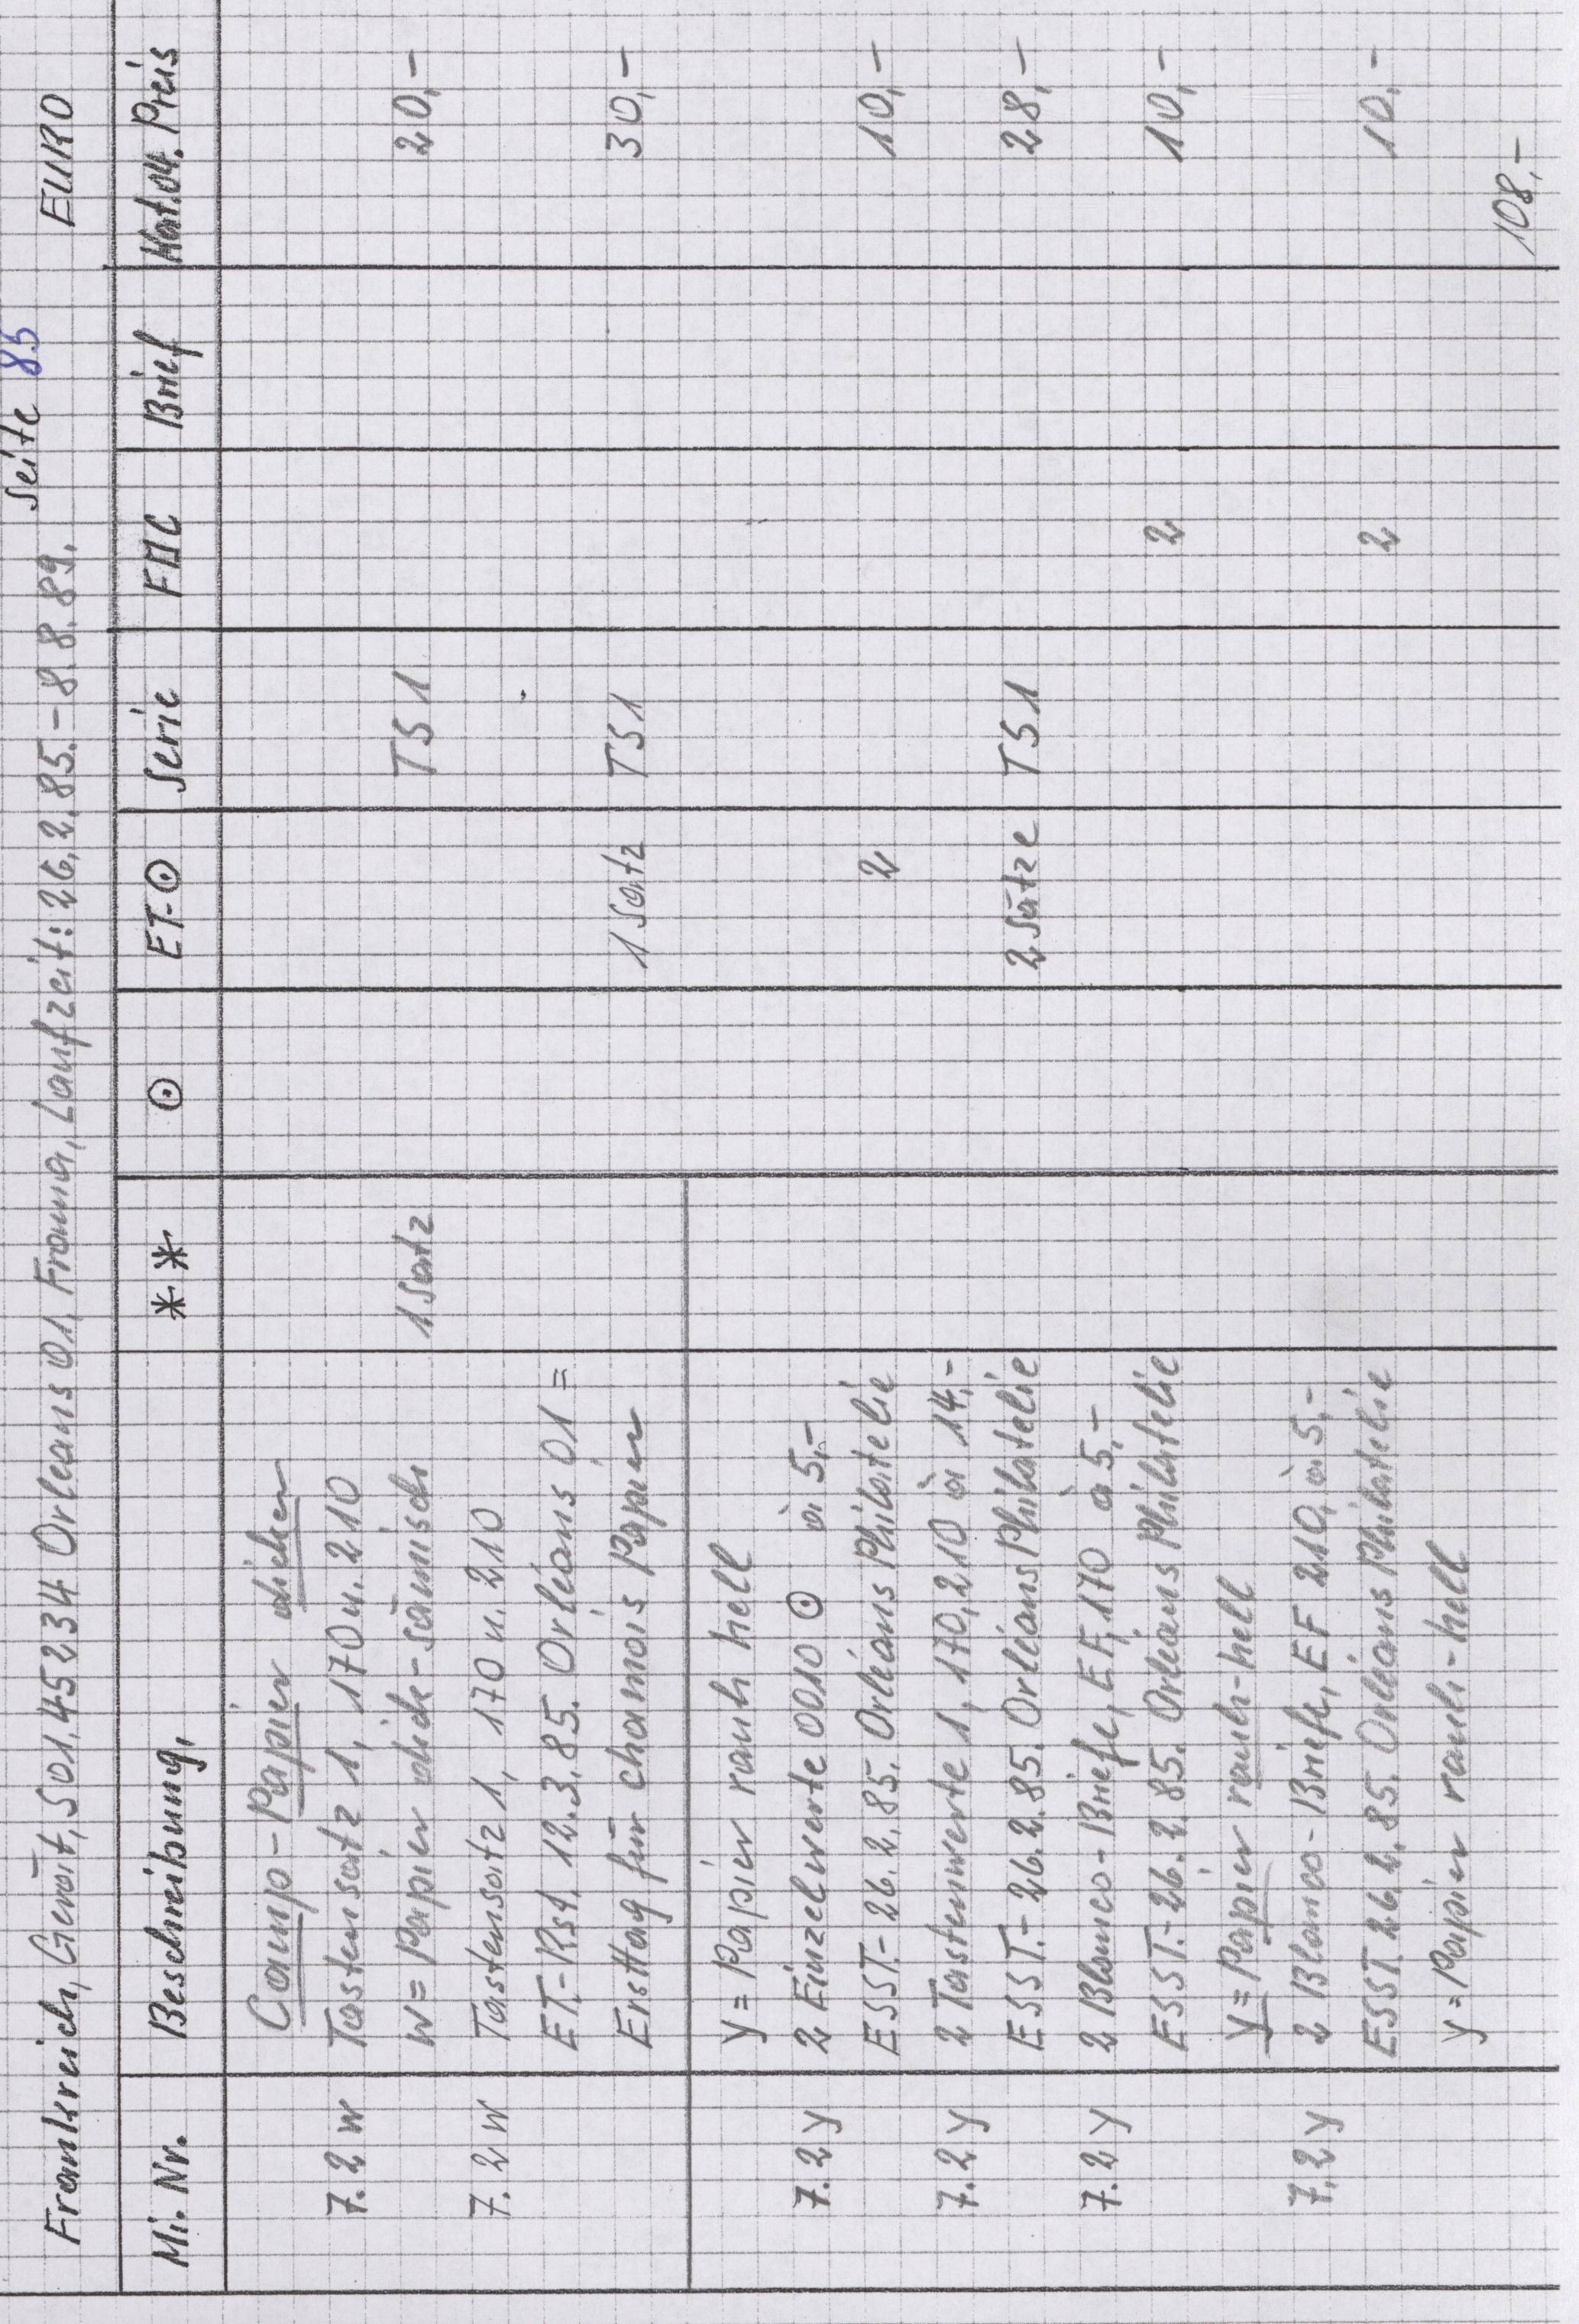 Seite 85
Frankreich, Gerät, 501, 45234 Orleans 01, Frama, Laufzeit: 26.2.85.-8.8.89. EURO
Mi. Nr. Beschreibung, ** ⊙ ET-⊙ Serie FDC Brief Kat.04. Preis
Camp-Papier dicker
7.2 w Tastensatz 1, 170 u. 210
w = Papier dick-sämisch 1 Satz TS 1 20,-
7.2 w Tastensatz 1, 170 u. 210
ET.-Rst. 12.3.85. Orléans 01 =
Ersttag für chamois Papier 1 Satz TS 1 30,-
y = Papier rauh hell
7.2 y 2 Einzelwerte 0010 ⊙ à 5,-
ESST.-26.2.85. Orléans Philatelie 2 10,-
7.2 y 2 Tastenwerte 1, 170, 210 à 14,-
ESST.-26.2.85. Orléans Philatelie 2 Sätze TS 1 28,-
7.2 y 2 Blanco-Briefe, EF, 170 à 5,-
ESST.-26.2.85. Orléans Philatelie 2 10,-
y = Papier rauh-hell
7.2 y 2 Blanco-Briefe, EF 210, à 5,-
ESST. 26.2.85. Orléans Philatelie 2 10,-
y = Papier rauh-hell
108,-